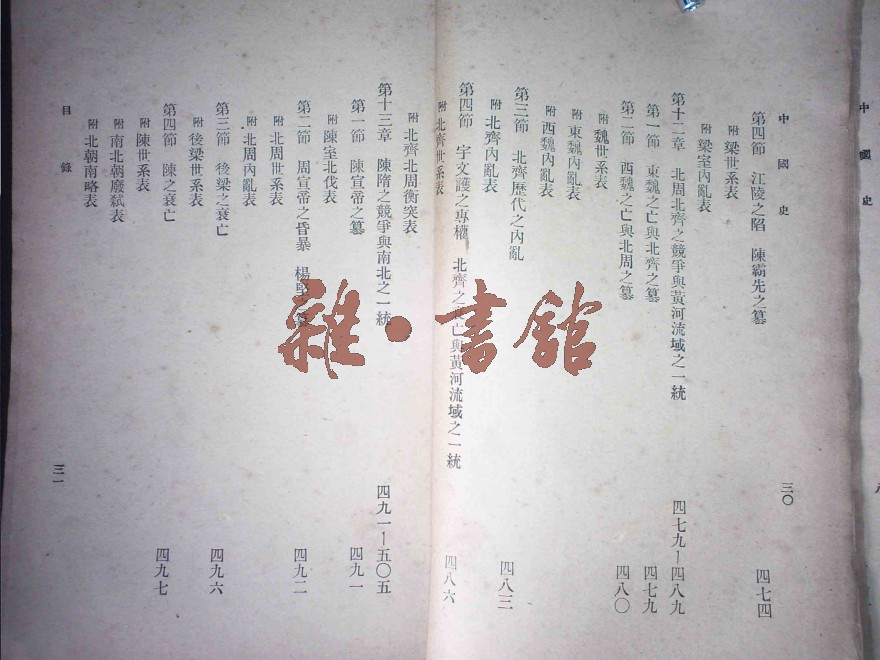 中國史
三〇
第四節 江陵之陷 陳霸先之篡 四七四
附 梁世系表
附 梁室內亂表
第十二章 北周北齊之競爭與黃河流域之一統 四七九－四八九
第一節 東魏之亡與北齊之篡 四七九
第二節 西魏之亡與北周之篡 四八〇
附 魏世系表
附 東魏內亂表
附 西魏內亂表
第三節 北齊歷代之內亂 四八三
附 北齊內亂表
第四節 宇文護之專權 北齊之亡與黃河流域之一統 四八六
附 北齊世系表
附 北齊北周衝突表
第十三章 陳隋之競爭與南北之一統 四九一－五〇五
第一節 陳宣帝之篡 四九一
附 陳室北伐表
第二節 周宣帝之昏暴 楊堅之篡 四九二
附 北周世系表
附 北周內亂表
第三節 後梁之衰亡 四九六
附 後梁世系表
第四節 陳之衰亡 四九七
附 陳世系表
附 南北朝廢弒表
附 北朝南略表
目錄
三一
雜·書館
中國史